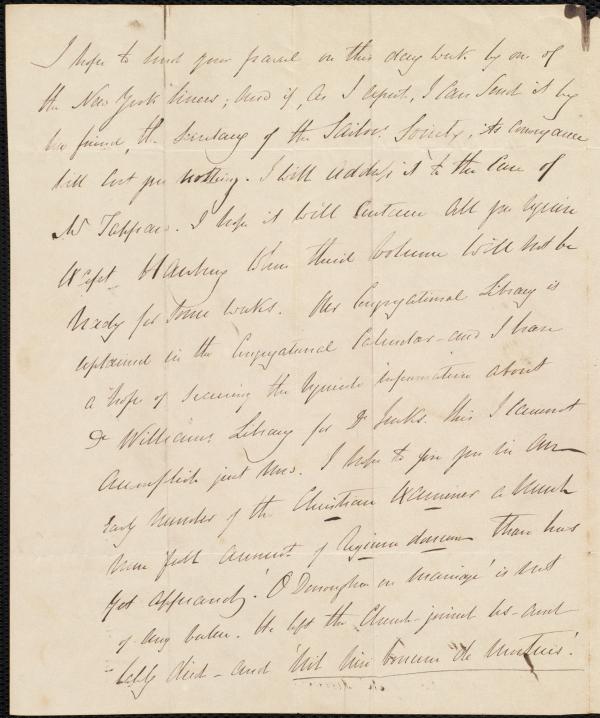 I hope to send your parcel on this day week by one of
the New York liners, and if, as I expect, I can send it by
our friend, the Secretary of the Sailors Society, its conveyance
will cost you nothing. I will address it to the care of
Mr Tappan. I hope it will contain all you require
except Hanbury whose third volume will not be
ready for some weeks. The Congregational Library is
explained in the Congregational Calendar - and I have
a hope of securing the requisite information about
Dr Williams Library for Dr Jenks. this I cannot
accomplish just now. I hope to give you in an
early number of the Christian Examiner a much
more full account of than has
yet appeared. 'O Donoughue on marriage' is not
of any value. He left the Church - joined us - and
lately died - and 'nil nisi bonum de mortuis'.